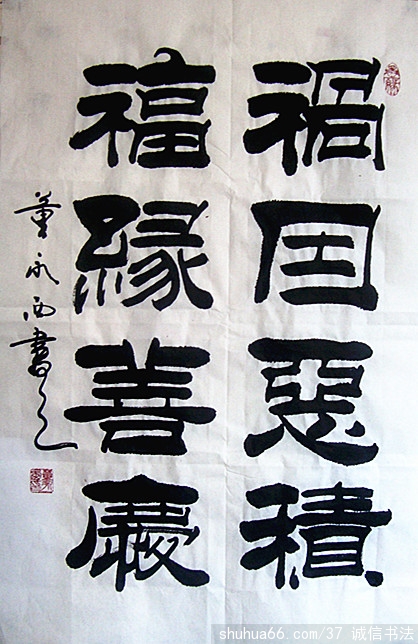 禍因惡積
福緣善慶
董永西書之
shuhua66.com/37 诚信书法